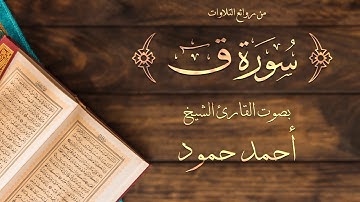 من روائع التلاوات
سُورَة ق
بصوت القارئ الشيخ
أحمد حمود